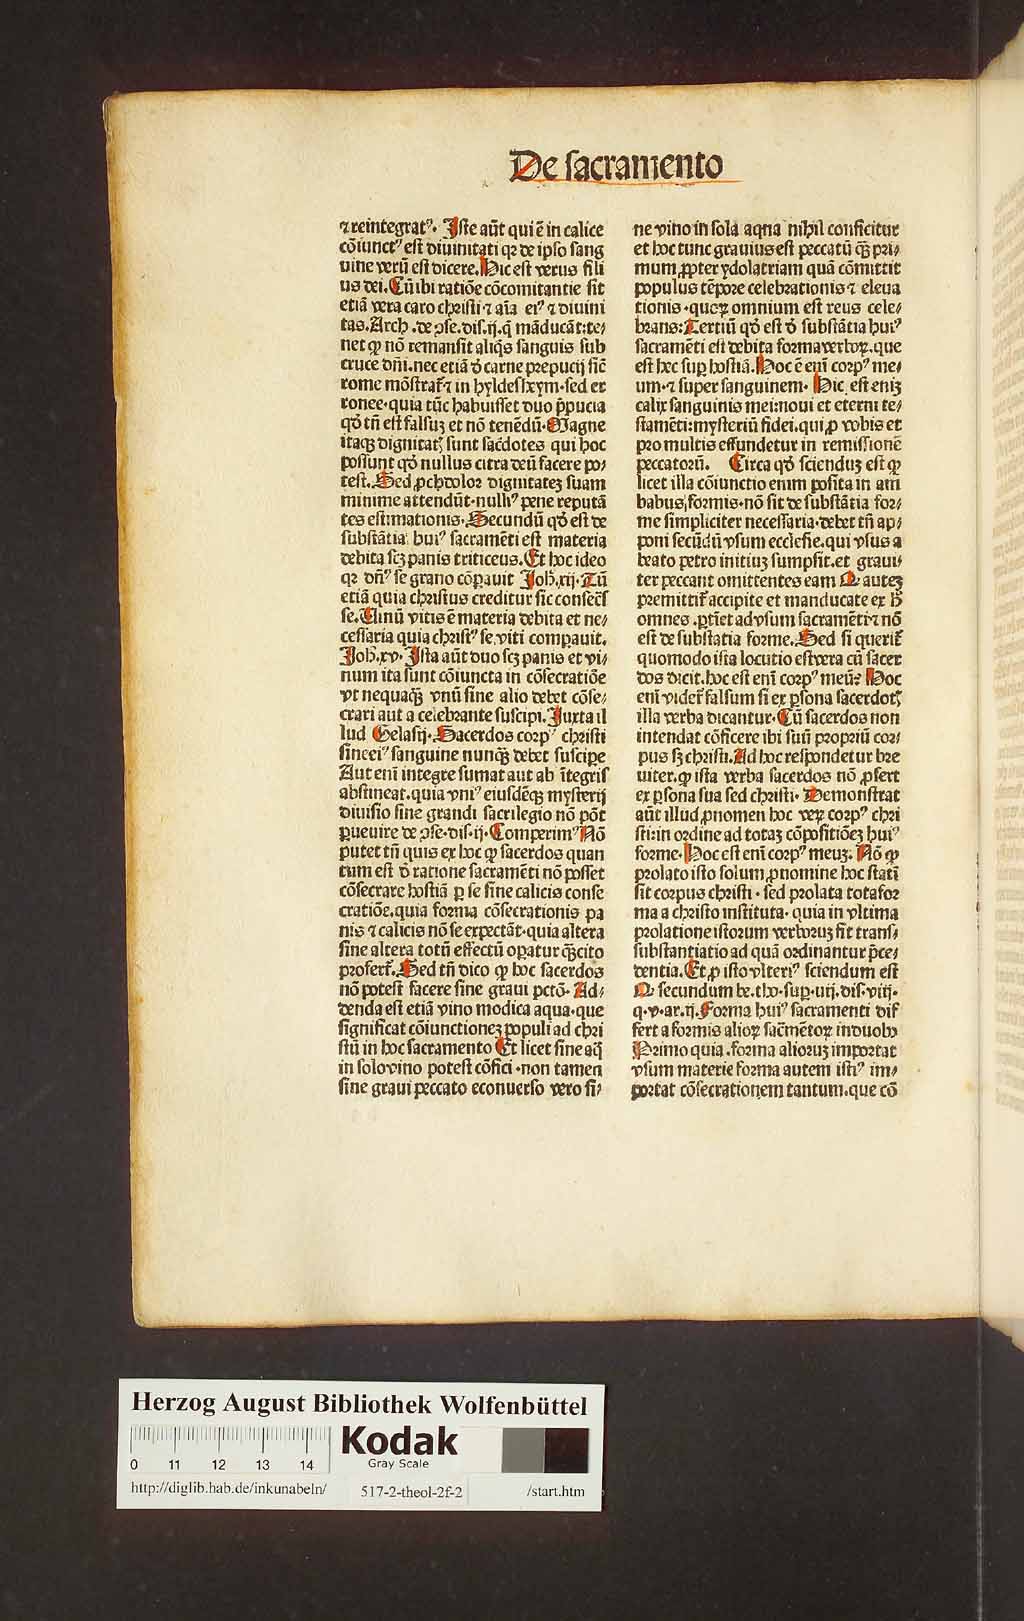 De sacramento
⁊ reintegratꝰ. Iste aūt qui ē in calice
cōiunctꝰ est diuinitati qꝛ de ipso sang
uine verū est dicere. Hic est verus fili
us dei. Cū ibi ratiōe cōcomitantie sit
etiā vera caro christi ⁊ aīa eiꝰ ⁊ diuini
tas. Arch. de ꝯse. dis. ij. q̄ māducāt: te⸗
net ꝙ nō remansit aliq̄s sanguis sub
cruce dn̄i. nec etiā ð carne prepucij sic̄
rome mōstrat᷑ ⁊ in hyldeshxym. sed er
ronee. quia tūc habuisset duo p̄pucia
qð tn̄ est falsuꝫ et nō tenēdū. Magne
itaqꝫ dignitatꝭ sunt sac̄dotes qui hoc
possunt qð nullus citra deū facere po⸗
test. Sed ꝓchdolor dignitateꝫ suam
minime attendūt. nulliꝰ pene reputā
tes estimationis. Secundū qð est de
substātia huiꝰ sacramēti est materia
debita scꝫ panis triticeus. Et hoc ideo
qꝛ dn̄ꝰ se grano cōꝑauit Joh̄. xij. Tū
etiā quia christus creditur sic consecr̄
se. Uinū vitis ē materia debita et ne⸗
cessaria quia christꝰ se viti comꝑauit.
Joh̄. xv. Ista aūt duo scꝫ panis et vi⸗
num ita sunt cōiuncta in cōsecratiōe
vt nequaq̄ꝫ vnū sine alio debet cōse⸗
crari aut a celebrante suscipi. Iuxta il
lud Gelasij. Sacerdos corpꝰ christi
sine eiꝰ sanguine nunq̄ꝫ debet suscipe
Aut eni integre sumat aut ab ītegris
abstineat. quia vniꝰ eiusdēqꝫ mysterij
diuisio sine grandi sacrilegio nō pōt
ꝑuenire de ꝯse. dis. ij. Comperimꝰ Nō
putet tn̄ quis ex hoc ꝙ sacerdos quan
tum est ð ratione sacramēti nō posset
cōsecrare hostiā ꝑ se sine calicis conse
cratiōe. quia forma cōsecrationis pa
nis ⁊ calicis nō se expectāt. quia altera
sine altera totū effectū oꝑatur q̄ꝫcito
profert᷑. Sed tn̄ dico ꝙ hoc sacerdos
nō potest facere sine graui pctō. Ad⸗
denda est etiā vino modica aqua. que
significat cōiunctioneꝫ populi ad chri
stū in hoc sacramento Et licet sine aq̄
in solo vino potest cōfici. non tamen
sine graui peccato econuerso vero si⸗
ne vino in sola aqua nihil conficitur
et hoc tunc grauius est peccatū q̄ꝫ pri⸗
mum ꝓpter ydolatriam quā cōmittit
populus tēpore celebrationis ⁊ eleua
tionis. quoꝝ omnium est reus cele⸗
brans: Tertiū qð est ð substātia huiꝰ
sacramēti est debita forma verboꝝ. que
est hec suꝑ hostiā. Hoc ē eni corpꝰ me⸗
um. ⁊ super sanguinem. Hic est eniꝫ
calix sanguinis mei: noui et eterni te⸗
stamēti: mysteriū fidei. qui ꝓ vobis et
pro multis effundetur in remissionē
peccatorū. Circa qð sciendū est ꝙ
licet illa cōiunctio enim posita in am
babus formis. nō sit de substātia for⸗
me simpliciter necessaria. debet tn̄ ap⸗
poni secūdū vsum ecclesie. qui vsus a
beato petro initiuꝫ sumpsit. et graui⸗
ter peccant omittentes eam Q̄ auteꝫ
premittit᷑ accipite et manducate ex h̄
omnes. ꝑtīet ad vsum sacramēti: ⁊ nō
est de substātia forme. Sed si querit᷑
quomodo ista locutio est vera cū sacer
dos dicit. hoc est eni corpꝰ meū: Hoc
eni videt᷑ falsum si ex ꝑsona sacerdotꝭ
illa verba dicantur. Cū sacerdos non
intendat cōficere ibi suū propriū cor⸗
pus sꝫ christi. Ad hoc respondetur bre
uiter. ꝙ ista verba sacerdos nō ꝓfert
ex ꝑsona sua sed christi. Demonstrat
aūt illud ꝓnomen hoc veꝝ corpꝰ chri
sti: in ordine ad totaꝫ cōpositiōeꝫ huiꝰ
forme. Hoc est eni corpꝰ meuꝫ. Nō ꝙ
prolato isto solum ꝓnomine hoc statī
sit corpus christi. sed prolata tota for
ma a christo instituta. quia in vltima
prolatione istorum verboruꝫ fit trans⸗
substantiatio ad quā ordinantur p̄ce⸗
dentia. Et ꝓ isto vlteriꝰ sciendum est
Q̄ secundum be. tho. suꝑ. iiij. dis. viij.
q. v. ar. ij. Forma huiꝰ sacramenti dif
fert a formis alioꝝ sac̄mētoꝝ in duobꝰ
Primo quia. forma alioruꝫ importat
vsum materie forma autem istiꝰ im⸗
portat cōsecrationem tantum. que cō
Herzog August Bibliothek Wolfenbüttel
0 11 12 13 14
Kodak
Gray Scale
http://diglib.hab.de/inkunabeln/ 517-2-theol-2f-2 /start.htm